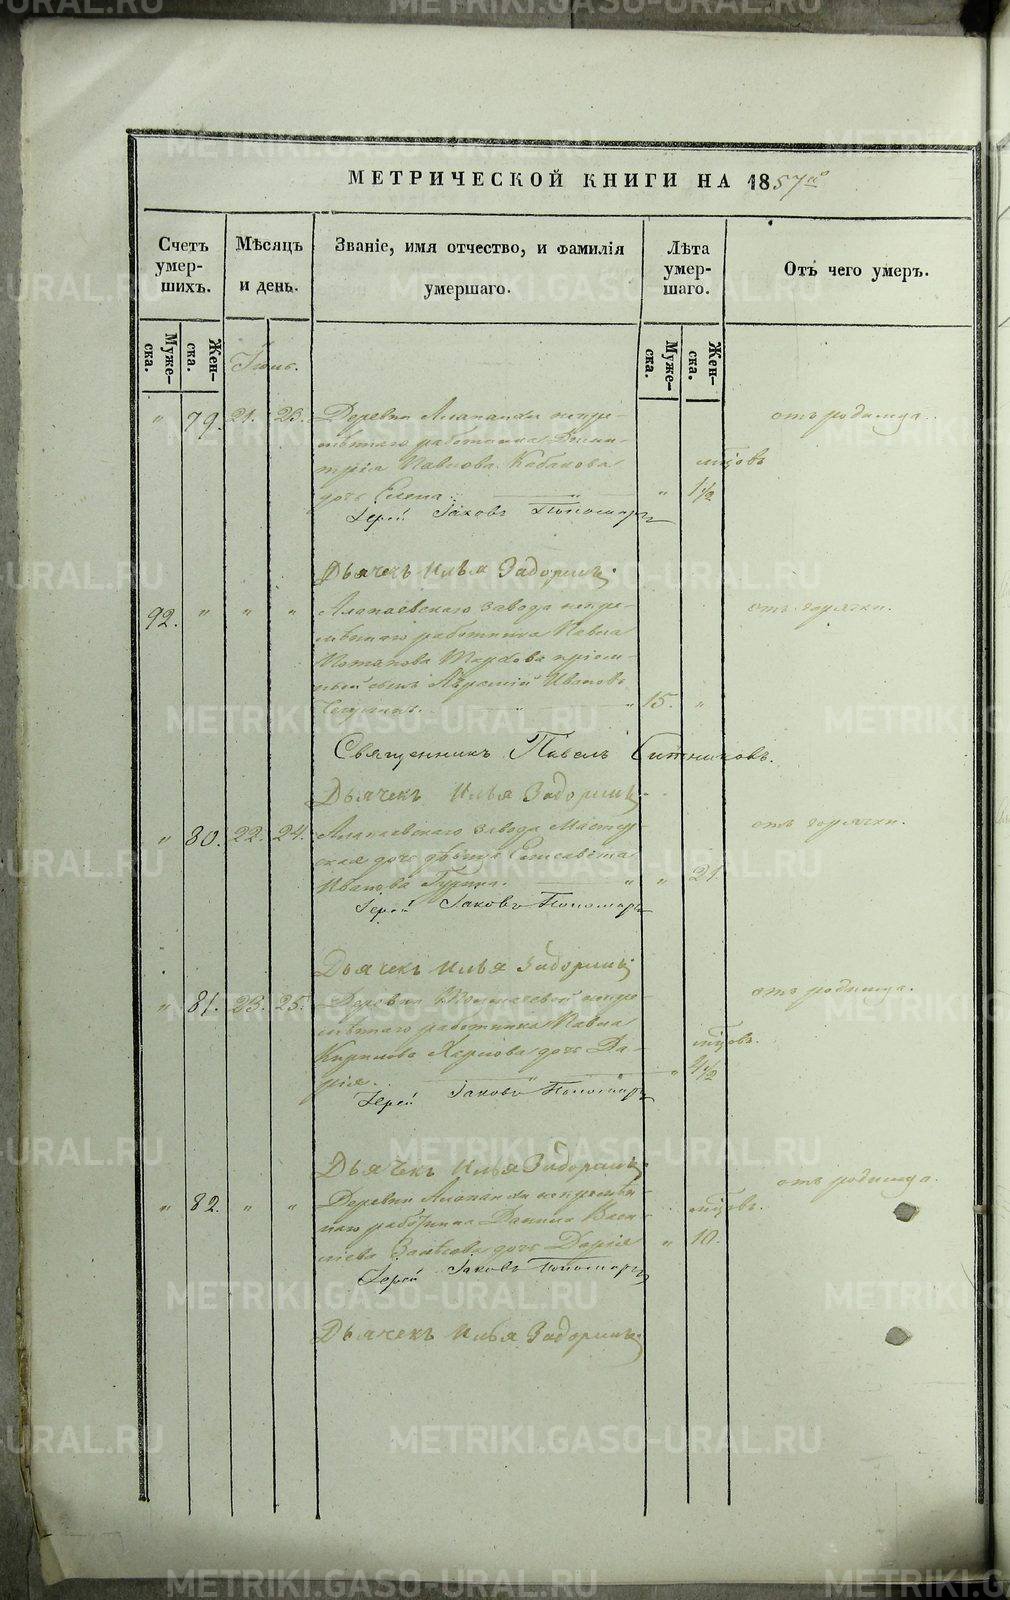 МЕТРИЧЕСКОЙ КНИГИ НА 1857го
Счетъ умер-шихъ.
Мѣсяцъ и день.
Званіе, имя отчество, и фамилія умершаго.
Лѣта умер-шаго.
Отъ чего умеръ.
Муже-ска.
Жен-ска.
Муже-ска.
Жен-ска.
Іюнь.
" 79. 21. 23. Деревни Алапаихи непре-
отъ родимца.
мѣннаго работника Дими-
трія Павлова Кабакова
мѣсцовъ
дочь Елена. " 1 1/2
Іерей Іаковъ Пономаревъ
Дьячекъ Илья Задоринъ
92. " " " Алапаевскаго завода непре-
отъ горячки.
мѣннаго работника Павла
Потапова пріем-
ный сынъ Ивановъ
" 15. "
Священникъ Павелъ Ситниковъ.
Дьячекъ Илья Задоринъ
" 80. 22. 24. Алапаевскаго завода Мастер-
отъ горячки.
ская дочь дѣвица Елисавета
Иванова " " 21
Іерей Іаковъ Пономаревъ
Дьячекъ Илья Задоринъ
" 81. 23. 25. Деревни непре-
отъ родимца.
мѣннаго работника Павла
Кирилова дочь Да-
мѣсцовъ.
рія. " 4 1/2
Іерей Іаковъ Пономаревъ
Дьячекъ Илья Задоринъ
" 82. " " Деревни Алапаихи непремѣн-
отъ родимца.
наго работника Данила Васи-
мѣсцовъ.
льева дочь Дарія " 10.
Іерей Іаковъ Пономаревъ
Дьячекъ Илья Задоринъ
METRIKI.GASO-URAL.RU